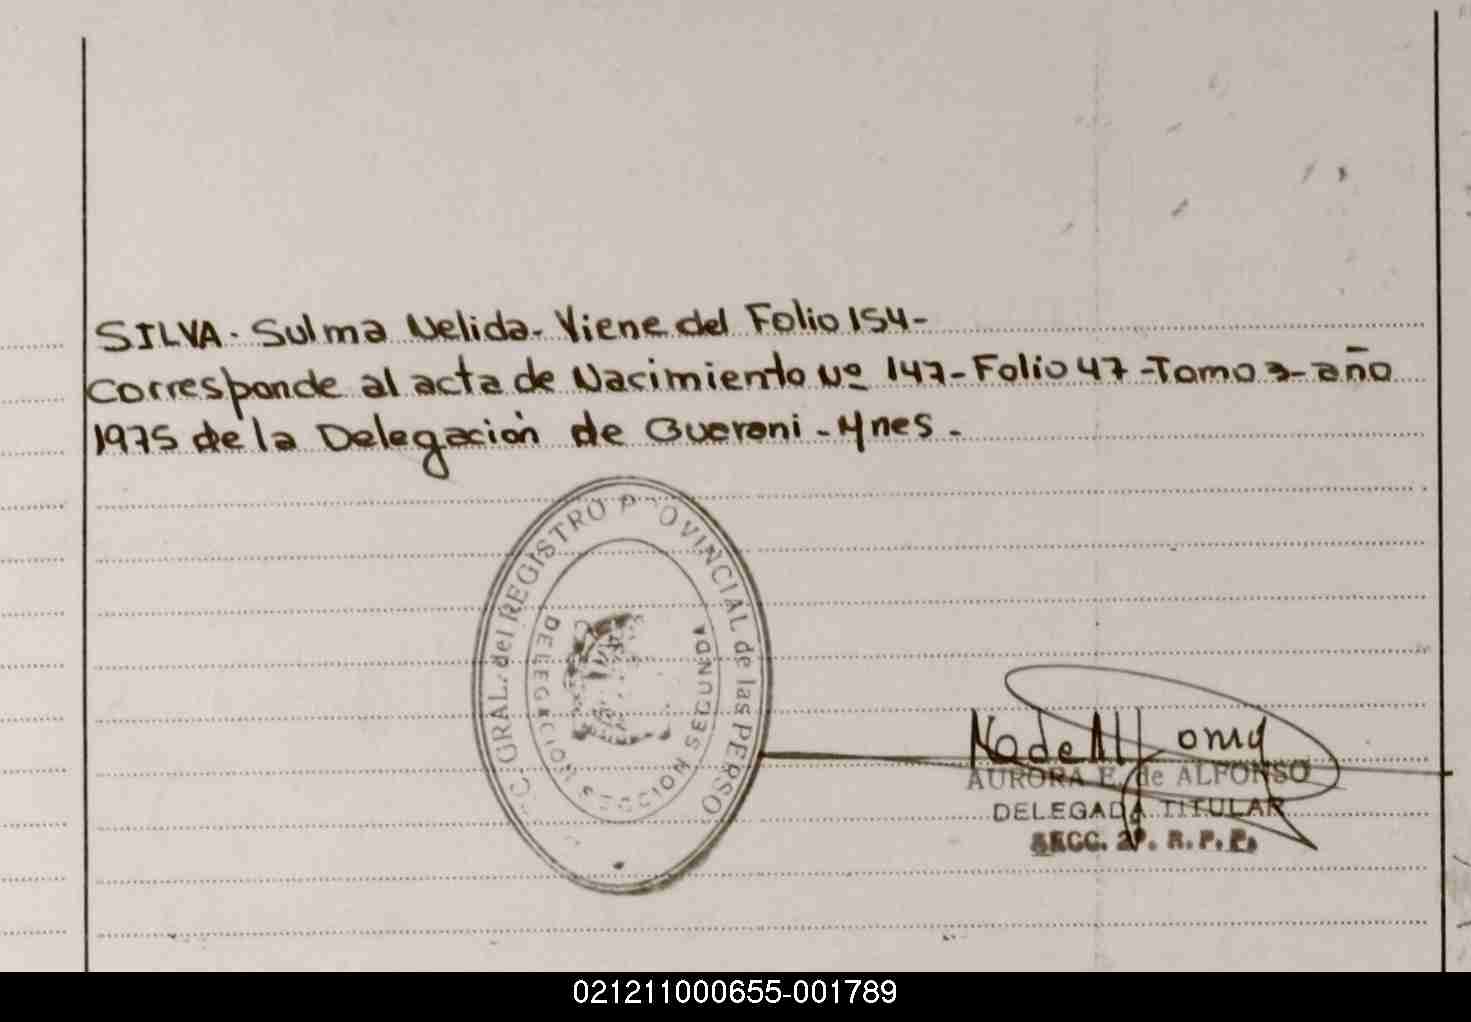 SILVA - Sulma Nelida - Viene del Folio 154 -
Corresponde al acta de Nacimiento Nº 147 - Folio 47 - Tomo 3 - año
1975 de la Delegación de Guarani - Mnes -
GRAL. del REGISTRO PROVINCIAL de las PERSO
DELEGACION SECCION SEGUNDA
AURORA E. de ALFONSO
DELEGADA TITULAR
SECC. 2ª. R. P. P.
021211000655-001789